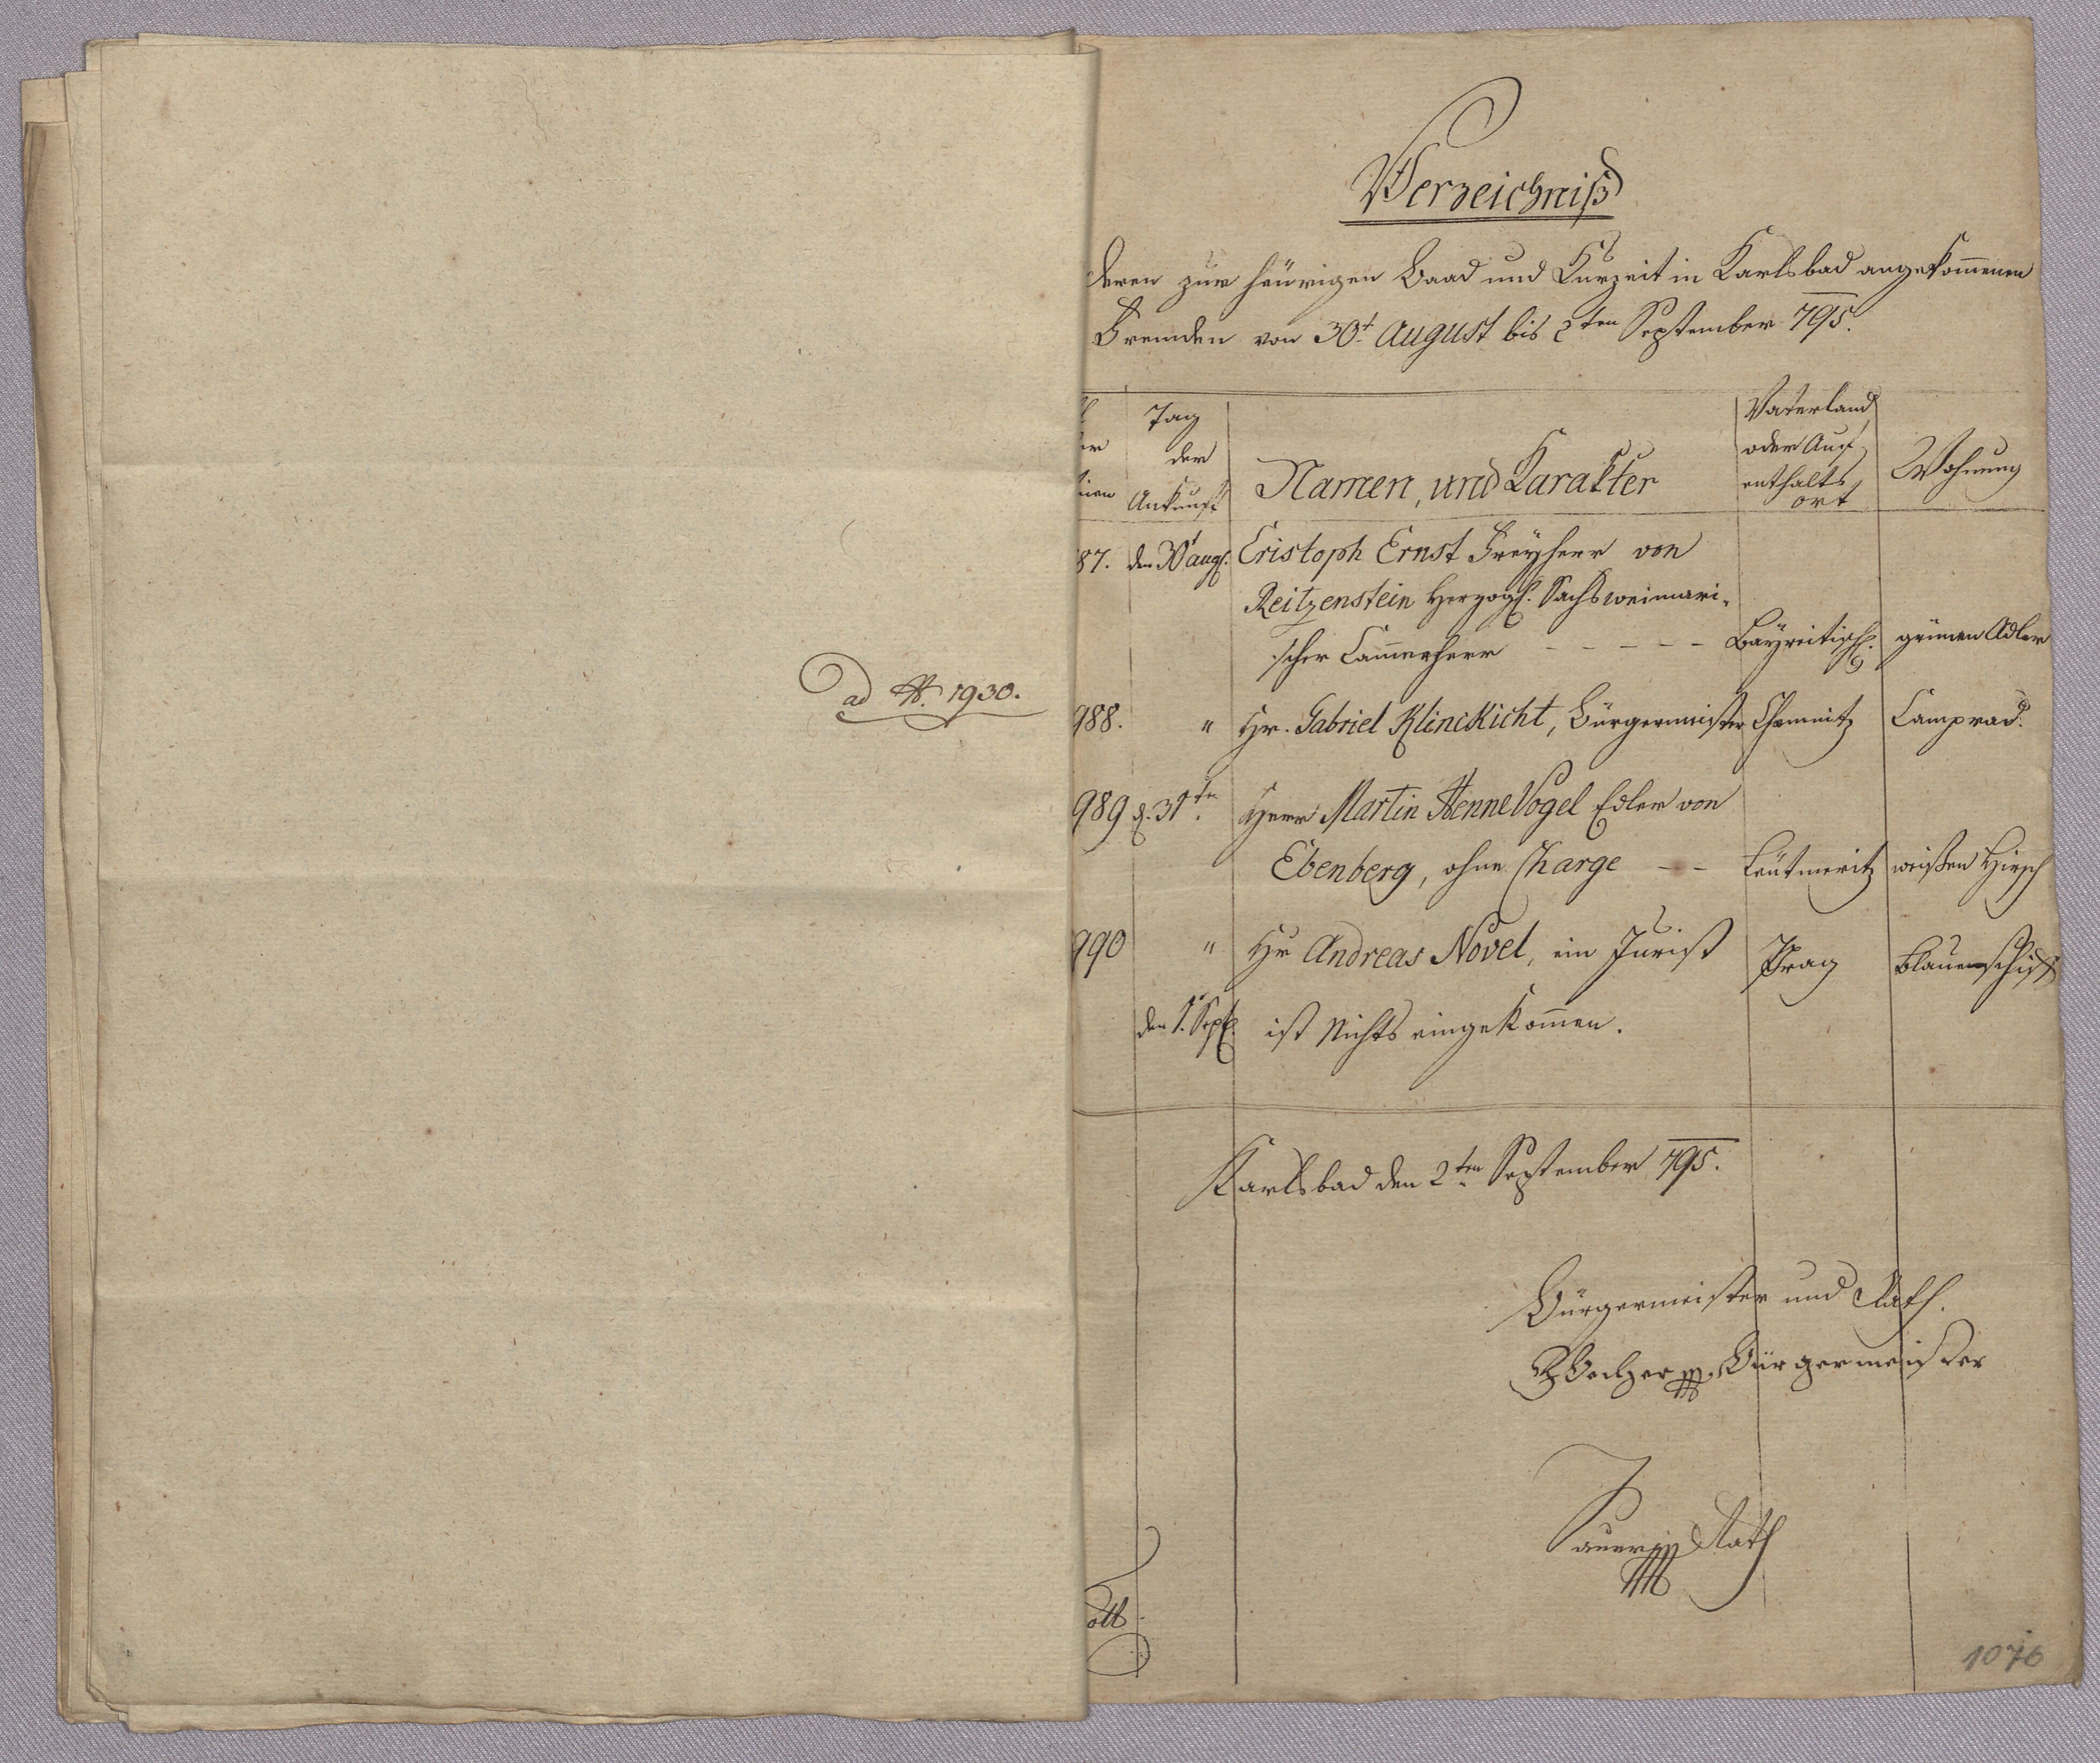 ad N. 1930.
Verzeichniß
deren zur heürigen Baad und Kurzeit in Karlsbad angekom̅enen
Fremden von 30t August bis 2ten September 795.
Tag
der
Ankunft
Namen, und Karakter
Vaterland
oder Auf
enthalts
ort
Wohnung
87. den 30t aug. Cristoph Ernst Freyherr von
Reitzenstein Herzogl. Sachsweimari-
scher Cam̅erherr - - - - - Bayreitisch. grünen Adler
988. " Hr. Gabriel Klinckicht, Bürgermeister Chemnitz Camprad.
989 d. 31ten Herr Martin HenneVogel Edler von
Ebenberg, ohne Charge - - Leütmeritz weißen Hirsch
990 " Hr Andreas Novel, ein Jurist Prag blauenschif
den 1. Sept. ist Nichts eingekom̅en.
Karlsbad den 2ten September 795.
Bürgermeister und Rath.
Bürgermeister
Rath
1076